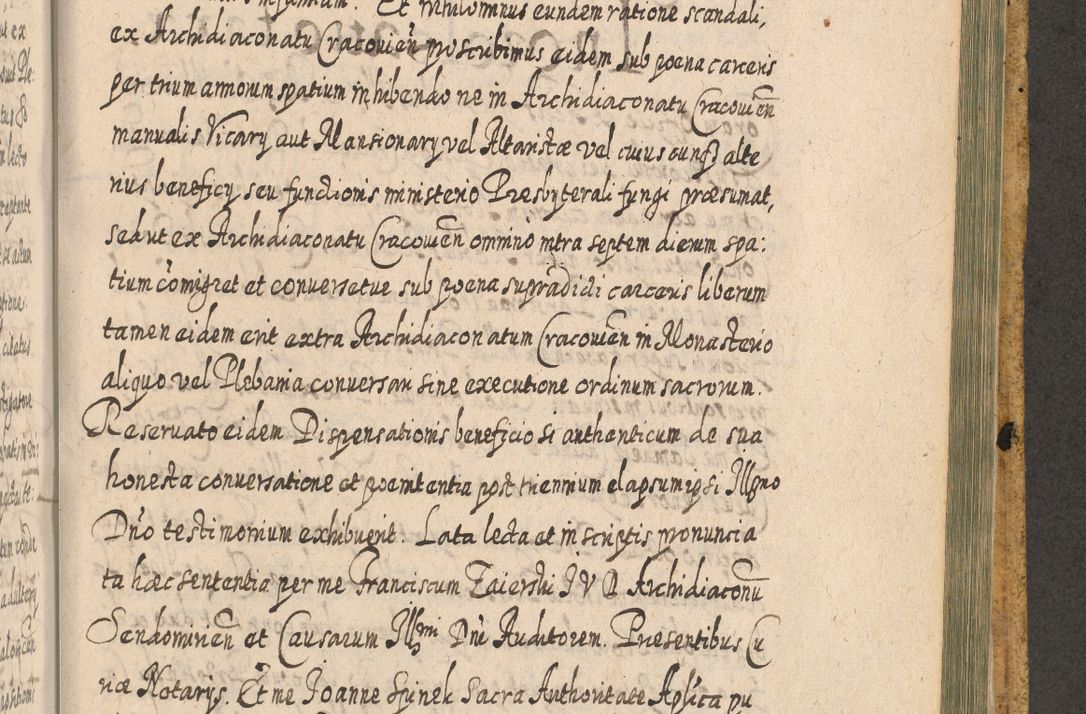 Et nihilominus eundem ratione scandali,
ex Archidiaconatu Cracovien̄ proscribimus eidem sub poena carceris
per trium annorum spatium inhibendo ne in Archidiaconatu Cracovien̄
manualis Vicarij aut Mansionarij vel Altaristæ vel cuiuscunq alte
rius beneficij, seu functionis ministerio Præsbyterali fungi præsumat,
sed ut ex Archidiaconatu Cracovien̄ omnino intra septem dierum spa:
tium com̄igret et conversetur sub poena supradicti carceris liberum
tamen eidem erit extra Archidiaconatum Cracovien̄ in Monasterio
aliquo vel Plebania conversari sine executione ordinum sacrorum.
Reservato eidem Dispensationis beneficio si authenticum de sua
honesta conversatione et poenitentia post triennium elapsum ipsi Illmo
Dn̄o testimonium exhibuerit. Lata lecta et in scriptis pronuncia
ta hæc sententia per me Franciscum Zaierski I V D Archidiaconū
Sendomirien̄ et Causarum Illmi Dn̄i Auditorem. Præsentibus Cu
riæ Notarijs. Et me Joanne Spinek Sacra Authoritate Aplica pu